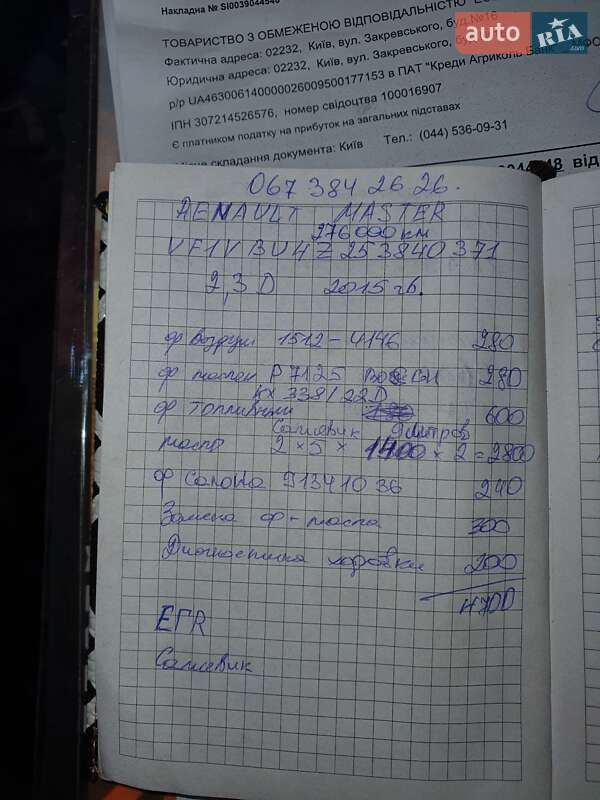 Накладна № SI0039044548
auto RIA .com
ТОВАРИСТВО З ОБМЕЖЕНОЮ ВІДПОВІДАЛЬНІСТЮ
Фактична адреса: 02232, Київ, вул. Закревського, буд.№16
Юридична адреса: 02232, Київ, вул. Закревського,
р/р UA463006140000026009500177153 в ПАТ "Креди Агриколь Банк"
ІПН 307214526576, номер свідоцтва 100016907
Є платником податку на прибуток на загальних підставах
складання документа: Київ Тел.: (044) 536-09-31
від
067 384 26 26.
RENAULT MASTER
276000 км
VF1VBU4Z253840371
2,3 D 2015 гв.
ф Воздуш 1512-4146 280
ф маслен P7125 280
KX 338/22D
ф топливный 600
Сальевик 9 литров
масло 2 × 5 × 1400 × 2 = 2800
ф салона 9134 10 36 240
Замена ф - масла 300
Диагностика ходовки 200
4700
EГR
Сальевик